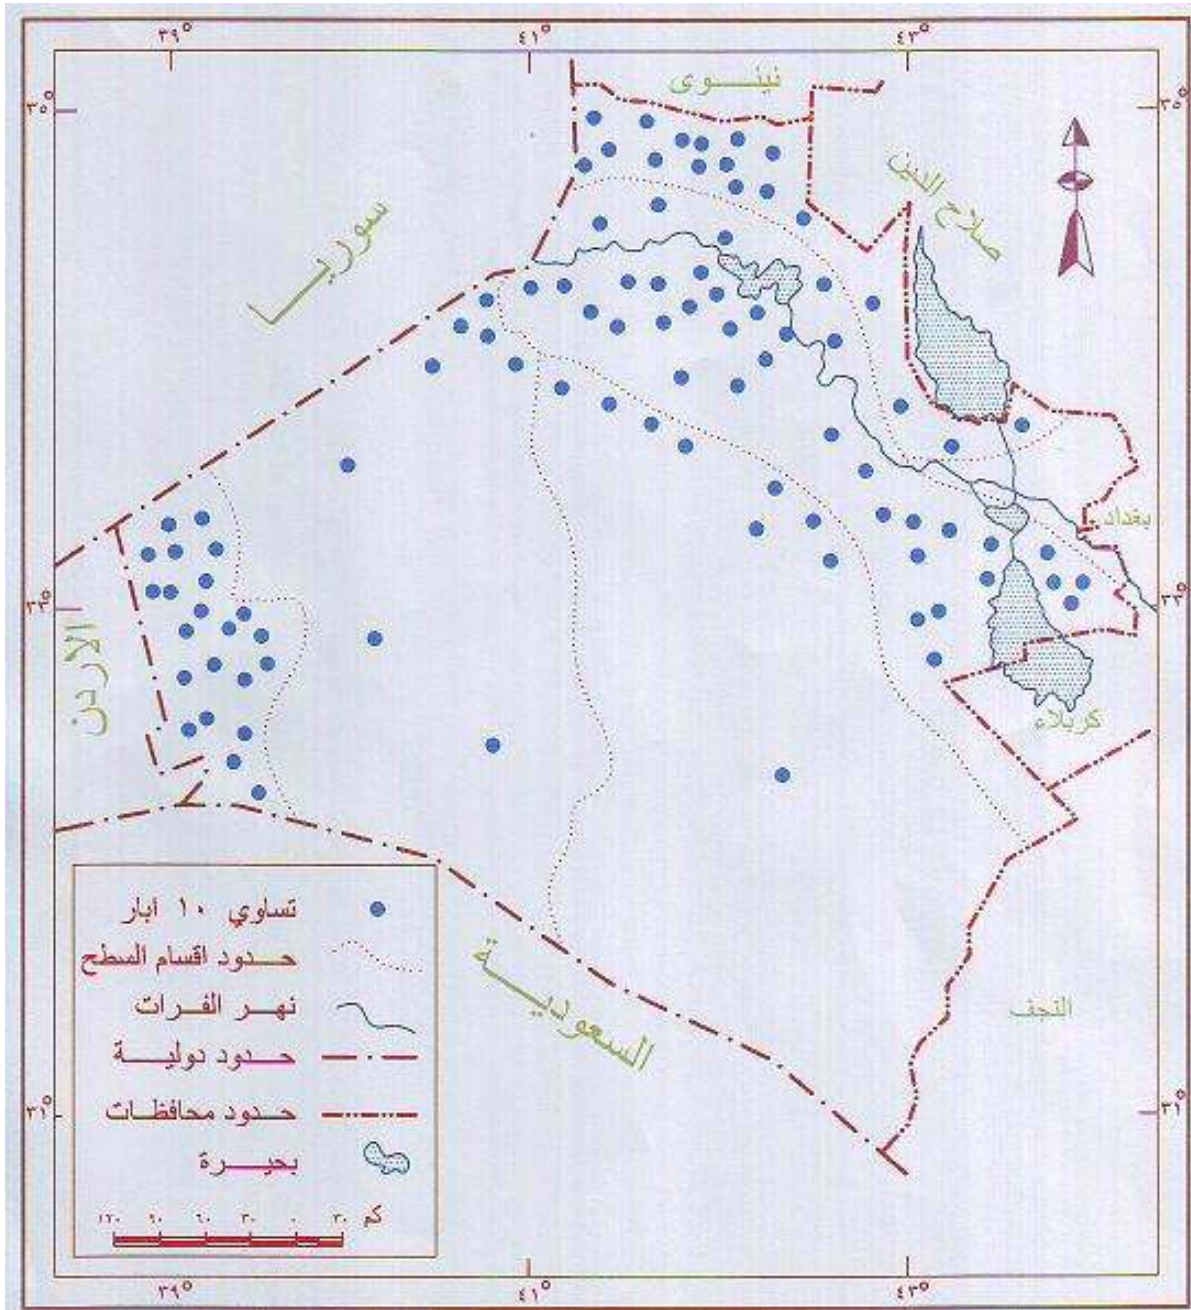 ٣٩° ٤١° ٤٣°
٣٥° ٣٥°
نينــوى
صلاح الدين
سوريــا
بغداد
٣٣° ٣٣°
الاردن
كربلاء
السعوديــة
النجف
٣١° ٣١°
تساوي ١٠ ابار
حــدود اقسام السطح
نهــر الفــرات
حــدود دوليــة
حــدود محافظــات
بحيــرة
١٢٠ ٩٠ ٦٠ ٣٠ ٠ ٣٠ كم
٣٩° ٤١° ٤٣°